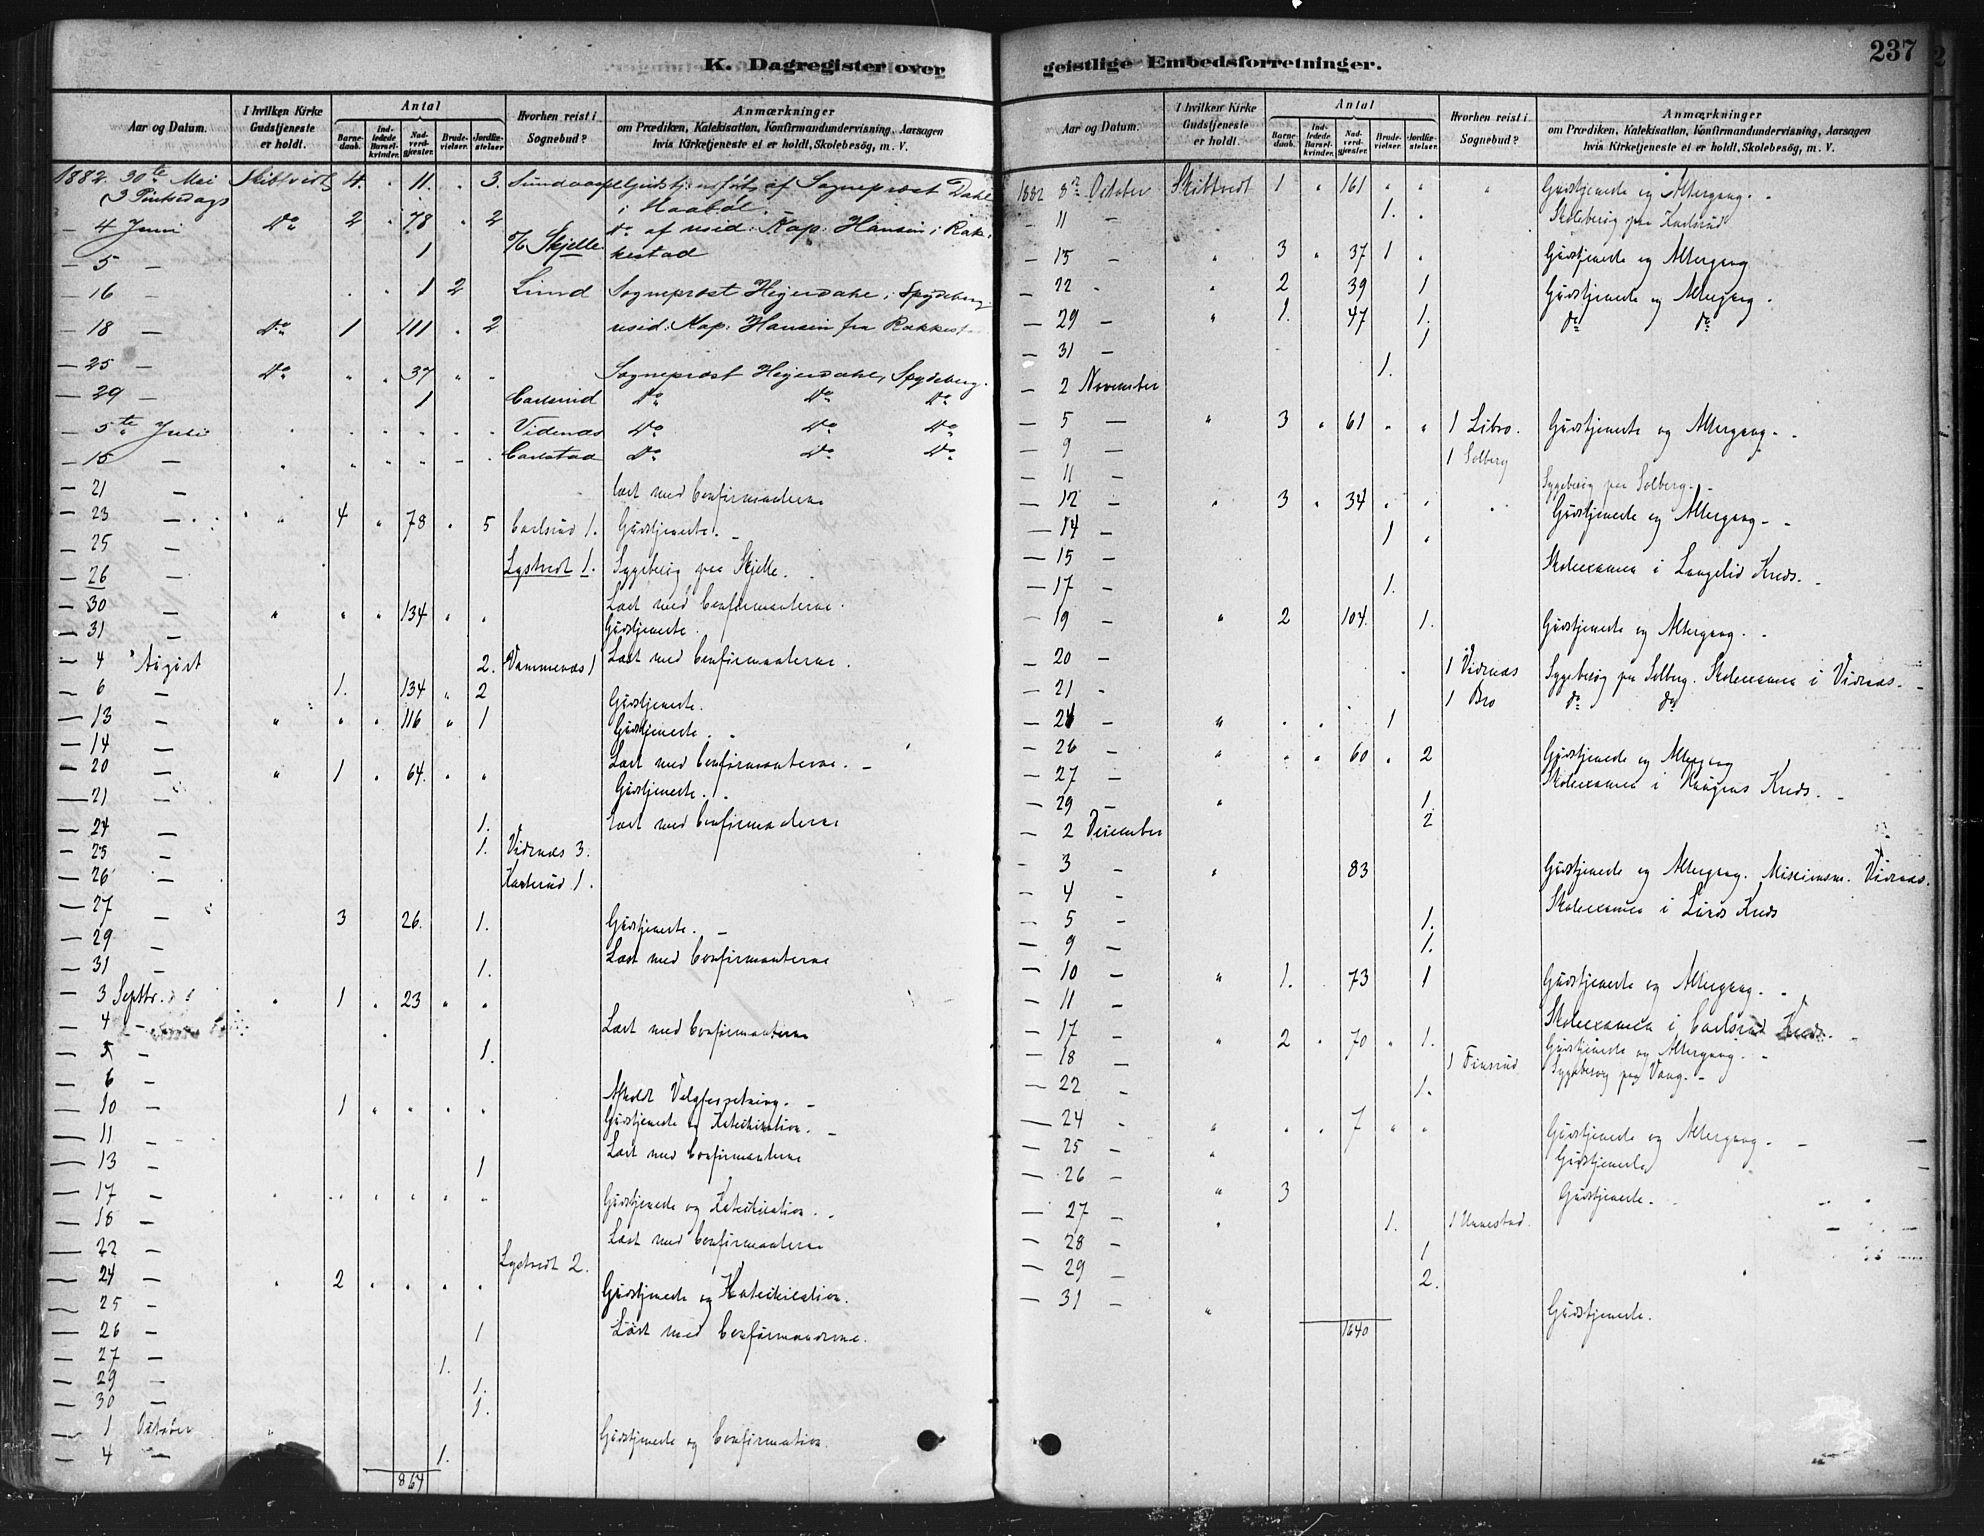 237
K. Dagregister over
Aar og Datum. I hvilken Kirke Gudstjeneste er holdt. Antal Barnedaab. Indledede Barselkvinder. Nadverdgjæster. Brudevielser. Jordfæstelser Hvorhen reist i Sognebud? Anmærkninger om Prædiken, Katekisation, Konfirmandundervisning, Aarsagen hvis Kirketjeneste ei er holdt, Skolebesøg, m. V.
1882. 30te Mai Skibtvedt 4. " 11. " 3. Gudstj: af Sogneprost Dahl
3 Pintsedags i Haabøl.
— 4 Juni Do 2 " 78 " 2 Do af resid: Kap: Hansen i Rak-
— 5 — 1 5/6 Skjelle kestad
— 16 — 1 2 Lund Sogneprost Heyerdahl, Spydeberg
— 18 — Do 1 111 " 2 resid: Kap: Hansen fra Rakkest
— 25 — Do " " 37 " " Sogneprost Heyerdahl, Spydeberg.
— 29 — 1 Carlsrud Do Do Do
— 5te Juli Videnæs Do Do Do
— 15 — Carlstad Do Do Do
— 21 — læst med Confirmanterne
— 23 — " 4 " 78 " 5 Carlsrud 1. Gudstjeneste. —
— 25 —
— 26 — Lystvedt 1. Sygebesøg paa Skjelle.
— 30 — " " " 134 " " Læst med Confirmanterne.
— 31 — Gudstjeneste.
— 4 August 2. Vammenæs 1 Læst med Confirmanterne.
— 6 — 1. 134 " 2 Gudstjeneste.
— 13 — " " " 116 " 1 Gudstjeneste.
— 14 — Læst med Confirmanterne. —
— 20 — " 1 " 64. " " Gudstjeneste.
— 21 — læst med Confirmanterne
— 24 — 1.
— 25 — 1. Vidnæs 3.
— 26 — Karlsrud 1.
— 27 — 3 26. 1. Gudstjeneste. —
— 29 — Læst med Confirmanterne
— 31 — 1.
— 3 Septbr. " 1 " 23 " "
— 4 — Læst med Confirmanterne
— 5 — 1.
— 6 — Afholdt Valgforretning. —
— 10 — 1 " " " " Gudstjeneste og Katechisation. —
— 11 — Læst med Confirmanterne
— 13 — 1
— 17 — " " " " " " Gudstjeneste og Katechisation.
— 18 — Læst med Confirmanterne
— 22 — Lystvedt 2.
— 24 — " 2 " " " " Gudstjeneste og Katechisation.
— 25 — Læst med Confirmanderne.
— 26 — 1
— 27 — 1.
— 29 — 1.
— 30 — 1.
— 1 October " Gudstjeneste og Confirmation.
— 4 — 1.
864
geistlige Embedsforretninger.
Aar og Datum. I hvilken Kirke Gudstjeneste er holdt. Antal Barnedaab. Indledede Barselkvinder. Nadverdgjæster. Brudevielser. Jordfæstelser. Hvorhen reist i Sognebud? Anmærkninger om Prædiken, Katekisation, Konfirmandundervisning, Aarsagen hvis Kirketjeneste ei er holdt, Skolebesøg, m. V.
1882 8de October Skibtvedt 1 " 161 " " " Gudstjeneste og Altergang. -
— 11 — 1. Skolebesøg paa Karlsrud
— 15 — " 3 " 37 1 " Gudstjeneste og Altergang
— 22 — " 2 39 1 Gudstjeneste og Altergang.
— 29 — " 1. 47 1. do do
— 31 — 1
— 2 November 1.
— 5 — " 3 " 61 " " 1 Libro. Gudstjeneste og Altergang. -
— 9 — 1 Solberg
— 11 — Sygebesøg paa Solberg. -
— 12 — " 3 " 34 " " Gudstjeneste og Altergang. -
— 14 — 1
— 15 — Skoleexamen i Langelid Kreds. -
— 17 — 1.
— 19 — " 2 104. 1. Gudstjeneste og Altergang. -
— 20 — 1 Vidnæs Sygebesøg paa Solberg. Skoleexamen i Vidnæs. -
— 21 — 1 Bro do do
— 24 — " 1
— 26 — " " " 60 " 2 Gudstjeneste og Altergang
— 27 — Skoleexamen i Kreds. -
— 29 — " 1.
— 2 December 2
— 3 — " 83 Gudstjeneste og Altergang. Vidnæs.
— 4 — Skoleexamen i Lunds Kreds
— 5 — 1.
— 9 — 1.
— 10 — " 1. 73 1 Gudstjeneste og Altergang. -
— 11 — Skoleexamen i Carlsrud Kreds.
— 17 — " 2 " 70 " 1. Gudstjeneste og Altergang. -
— 18 — 1 Finsrud Sygebesøg paa Vang. -
— 22 — 1.
— 24 — " " " 7 " " Gudstjeneste og Altergang. -
— 25 — " Gudstjeneste
— 26 — " 3 Gudstjeneste. -
— 27 — " 1. 1 Unnestad.
— 28 — 1
— 29 — 2.
— 31 — " Gudstjeneste.
1640